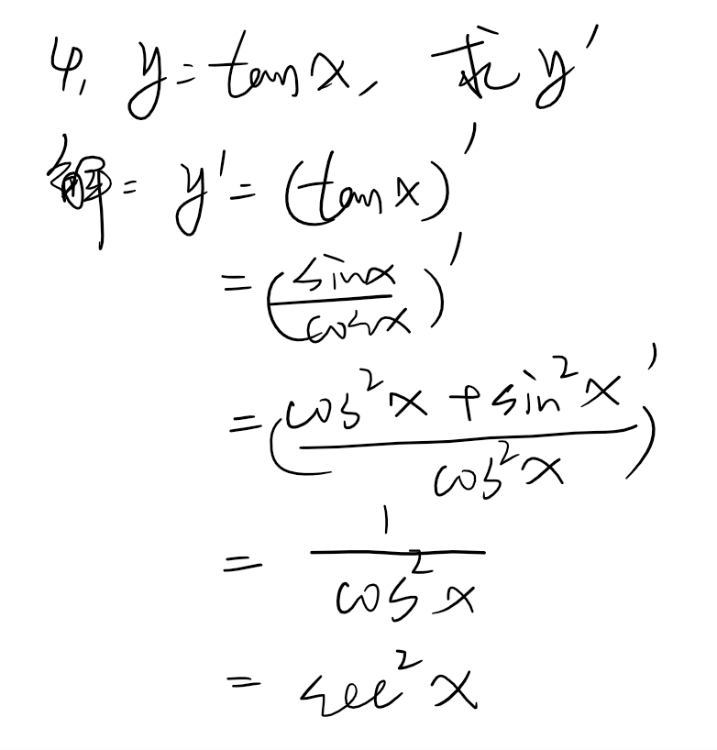 4. y = tanx, 求 y'
解: y' = (tanx)'
= (sinx/cosx)'
= ((cos²x + sin²x)/cos²x)'
= 1/cos²x
= sec²x